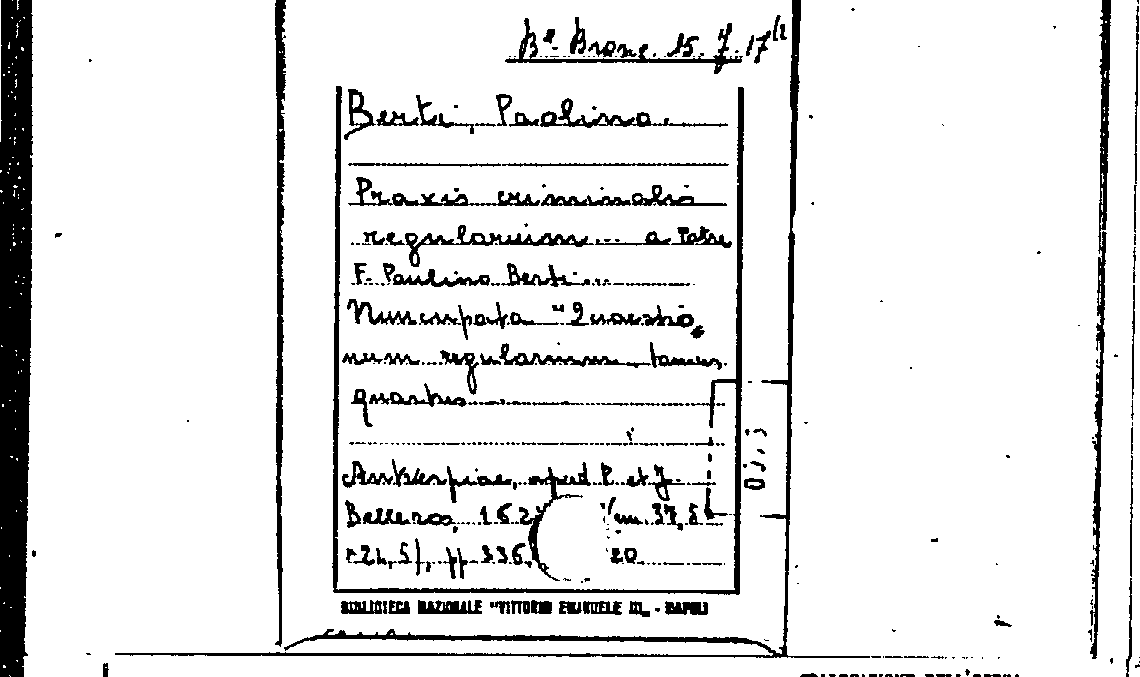 Bª Branc. 15. J. 17
Berti, Paolino.
Praxis criminalis
regularium... a Patre
F. Paulino Berti...
Nuncupata "Quaestio,,
num regularium tomus
quartus
Antverpiae, apud P. et J.
Belleros, 162 cm. 37,5
r24,5), pp 336, 20
BIBLIOTECA NAZIONALE "VITTORIO EMANUELE III„ - NAPOLI